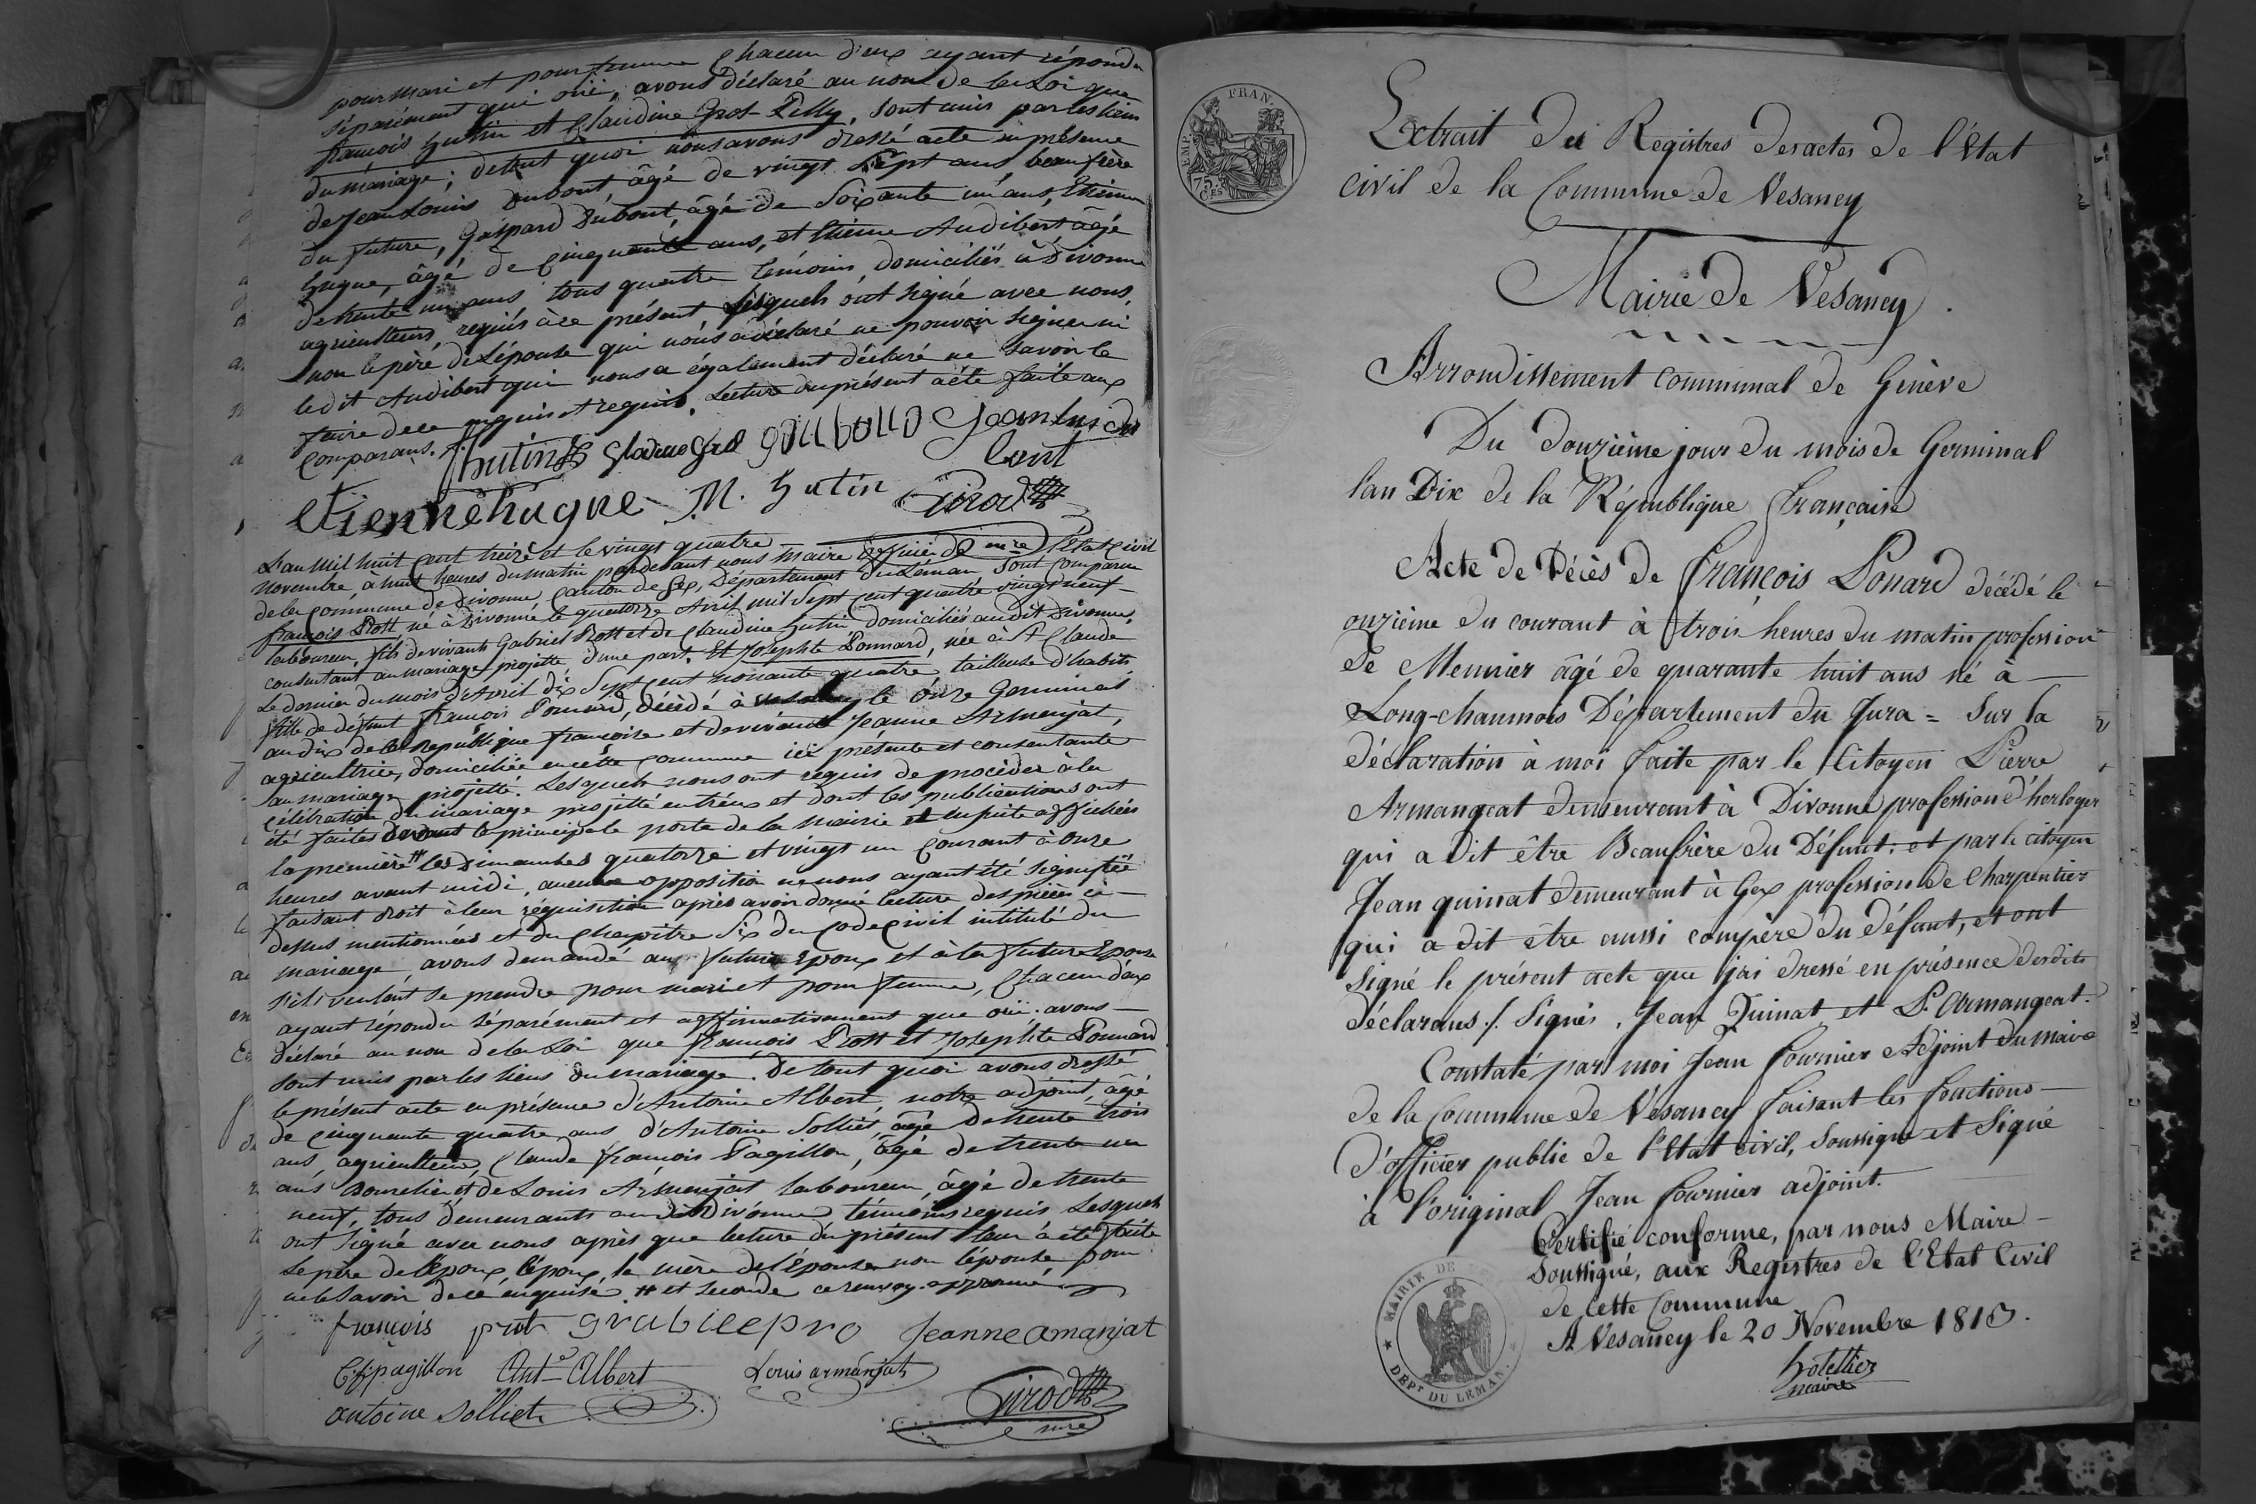 pour mari et pour femme chacun d'eux ayant répondu
séparément que oüi, avons déclaré au nom de la Loi que
françois hutin et Claudine Gros-Pilly, sont unis par les liens
du mariage; de tout quoi nous avons dressé acte en présence
de Jean Louis Dubout, âgé de vingt sept ans, beau frère
du future, Gaspard Dubout, âgé de soixante un ans, Etienne
hugue, âgé de cinquante ans, et Etienne Audibert âgé
de trente un ans tous quatre témoins, domiciliés à Divonne
agriculteurs, requis à ce présent lesquels ont signé avec nous,
non le père de L'épouse qui nous a déclaré ne pouvoir signer ni
le dit Audibert qui nous a également déclaré ne savoir le
faire de ce enquis et requis. Lecture du présent a été faite aux
comparans.
fhutin Jean Luis du
bout
etiennehugue M. hutin Girod
L'an mil huit cent treize et le vingt quatre
novembre, à huit heures du matin pardevant nous maire officier de l'État Civil
de la Commune de Divonne, Canton de Gex, Département du Léman sont comparu
françois Prott né à Divonne le quatorze Avril mil sept cent quatre vingt neuf
laboureur, fils de vivants Gabriel Prott et de Claudine hutin domiciliés au dit Divonne,
consentant au mariage projetté, d'une part. Et Josephte Ponnard, née à St Claude
Le dernier du mois d'Avril dix sept cent nonante quatre tailleuse d'habits
fille de défunt françois Ponnard, décédé à Vesancy le onze Germinal
an dix de la République françoise et de vivante Jeanne Armenjat,
agricultrice, domiciliée en cette commune ici présente et consentante
au mariage projetté. Lesquels nous ont requis de procéder à la
célébration du mariage projetté entr'eux et dont les publications ont
été faites devant la principale porte de la mairie et ensuite affichées
la première # les Dimanches quatorze et vingt un courant à onze
heures avant midi, aucune opposition ne nous ayant été signifiée
faisant droit à leur réquisition après avoir donné lecture des pièces ci-
dessus mentionnées et du Chapitre Six du Code Civil intitulé du
mariage, avons demandé au futur Epoux et à la future Epouse
s'ils veulent se prendre pour mari et pour femme, Chacun d'eux
ayant répondu séparément et affirmativement que oüi: avons
déclaré au nom de la Loi que françois Prott et Josephte Ponnard
sont unis par les liens du mariage. de tout quoi avons dressé
le présent acte en présence d'Antoine Albert notre adjoint, âgé
de cinquante quatre ans d'Antoine Solliet, âgé de trente trois
ans agriculteur, Claude françois Pagillon, âgé de trente un
ans Bourelier et de Louis Armenjat laboureur, âgé de trente
neuf, tous demeurants au dit Divonne témoins requis Lesquels
ont signé avec nous après que lecture du présent leur a été faite
Le père de l'époux l'époux, la mère de l'épouse non l'épouse pour
ne le savoir de ce enquise. # et seconde ce renvoy approuvé
françois prot Jeanne amanjat
Cfpagillon Ant.e Albert Louis armanjat
antoine solliet Girod
mre
EMP. FRAN.
75 CES
Extrait des Registres des actes de l'État
civil de la Commune de Vesancy
Mairie de Vesancy.
Arrondissement communal de Genève
Du douzième jour du mois de Germinal
l'an Dix de la République française
Acte de Décès de François Ponard décédé le
onzième du courant à trois heures du matin profession
de Meunier âgé de quarante huit ans né à
Long-chaumois Département du Jura = Sur la
déclaration à moi faite par le Citoyen Pierre
Armangeat demeurant à Divonne profession d'horloger
qui a dit être Beaufrère du Défunt: et par le citoyen
Jean quinat demeurant à Gex profession de Charpentier
qui a dit être aussi compère du défunt, et ont
signé le présent acte que j'ai dressé en présence desdits
déclarans./. Signés, Jean Quinat et P. Armangeat.
Constaté par moi Jean fournier Adjoint du Maire
de la Commune de Vesancy faisant les fonctions
d'officier public de l'État civil, soussigné et Signé
à l'original Jean fournier adjoint.
Certifié conforme, par nous Maire
Soussigné, aux Registres de l'État Civil
de cette Commune
A Vesancy le 20 Novembre 1813.
maire
MAIRIE DE
DEPT DU LEMAN.